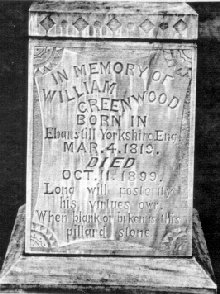 IN MEMORY OF
WILLIAM
GREENWOOD
BORN IN
Yorkshire Eng.
MAR. 4. 1819.
DIED
OCT. 11. 1899.
Long will posterity
his virtues own
When blank or broken is this
pillard stone